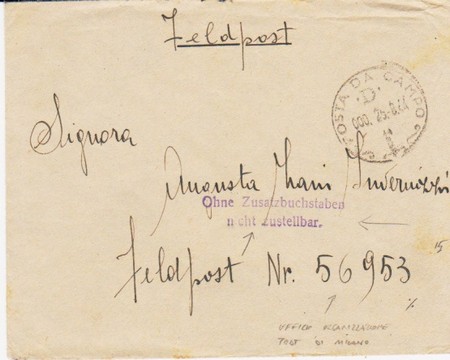 Feldpost
POSTA DA CAMPO
"D"
Signora
Augusta Invernizzi
Ohne Zusatzbuchstaben
nicht zustellbar.
Feldpost Nr. 56953
15
%
UFFICIO
TODT DI MILANO